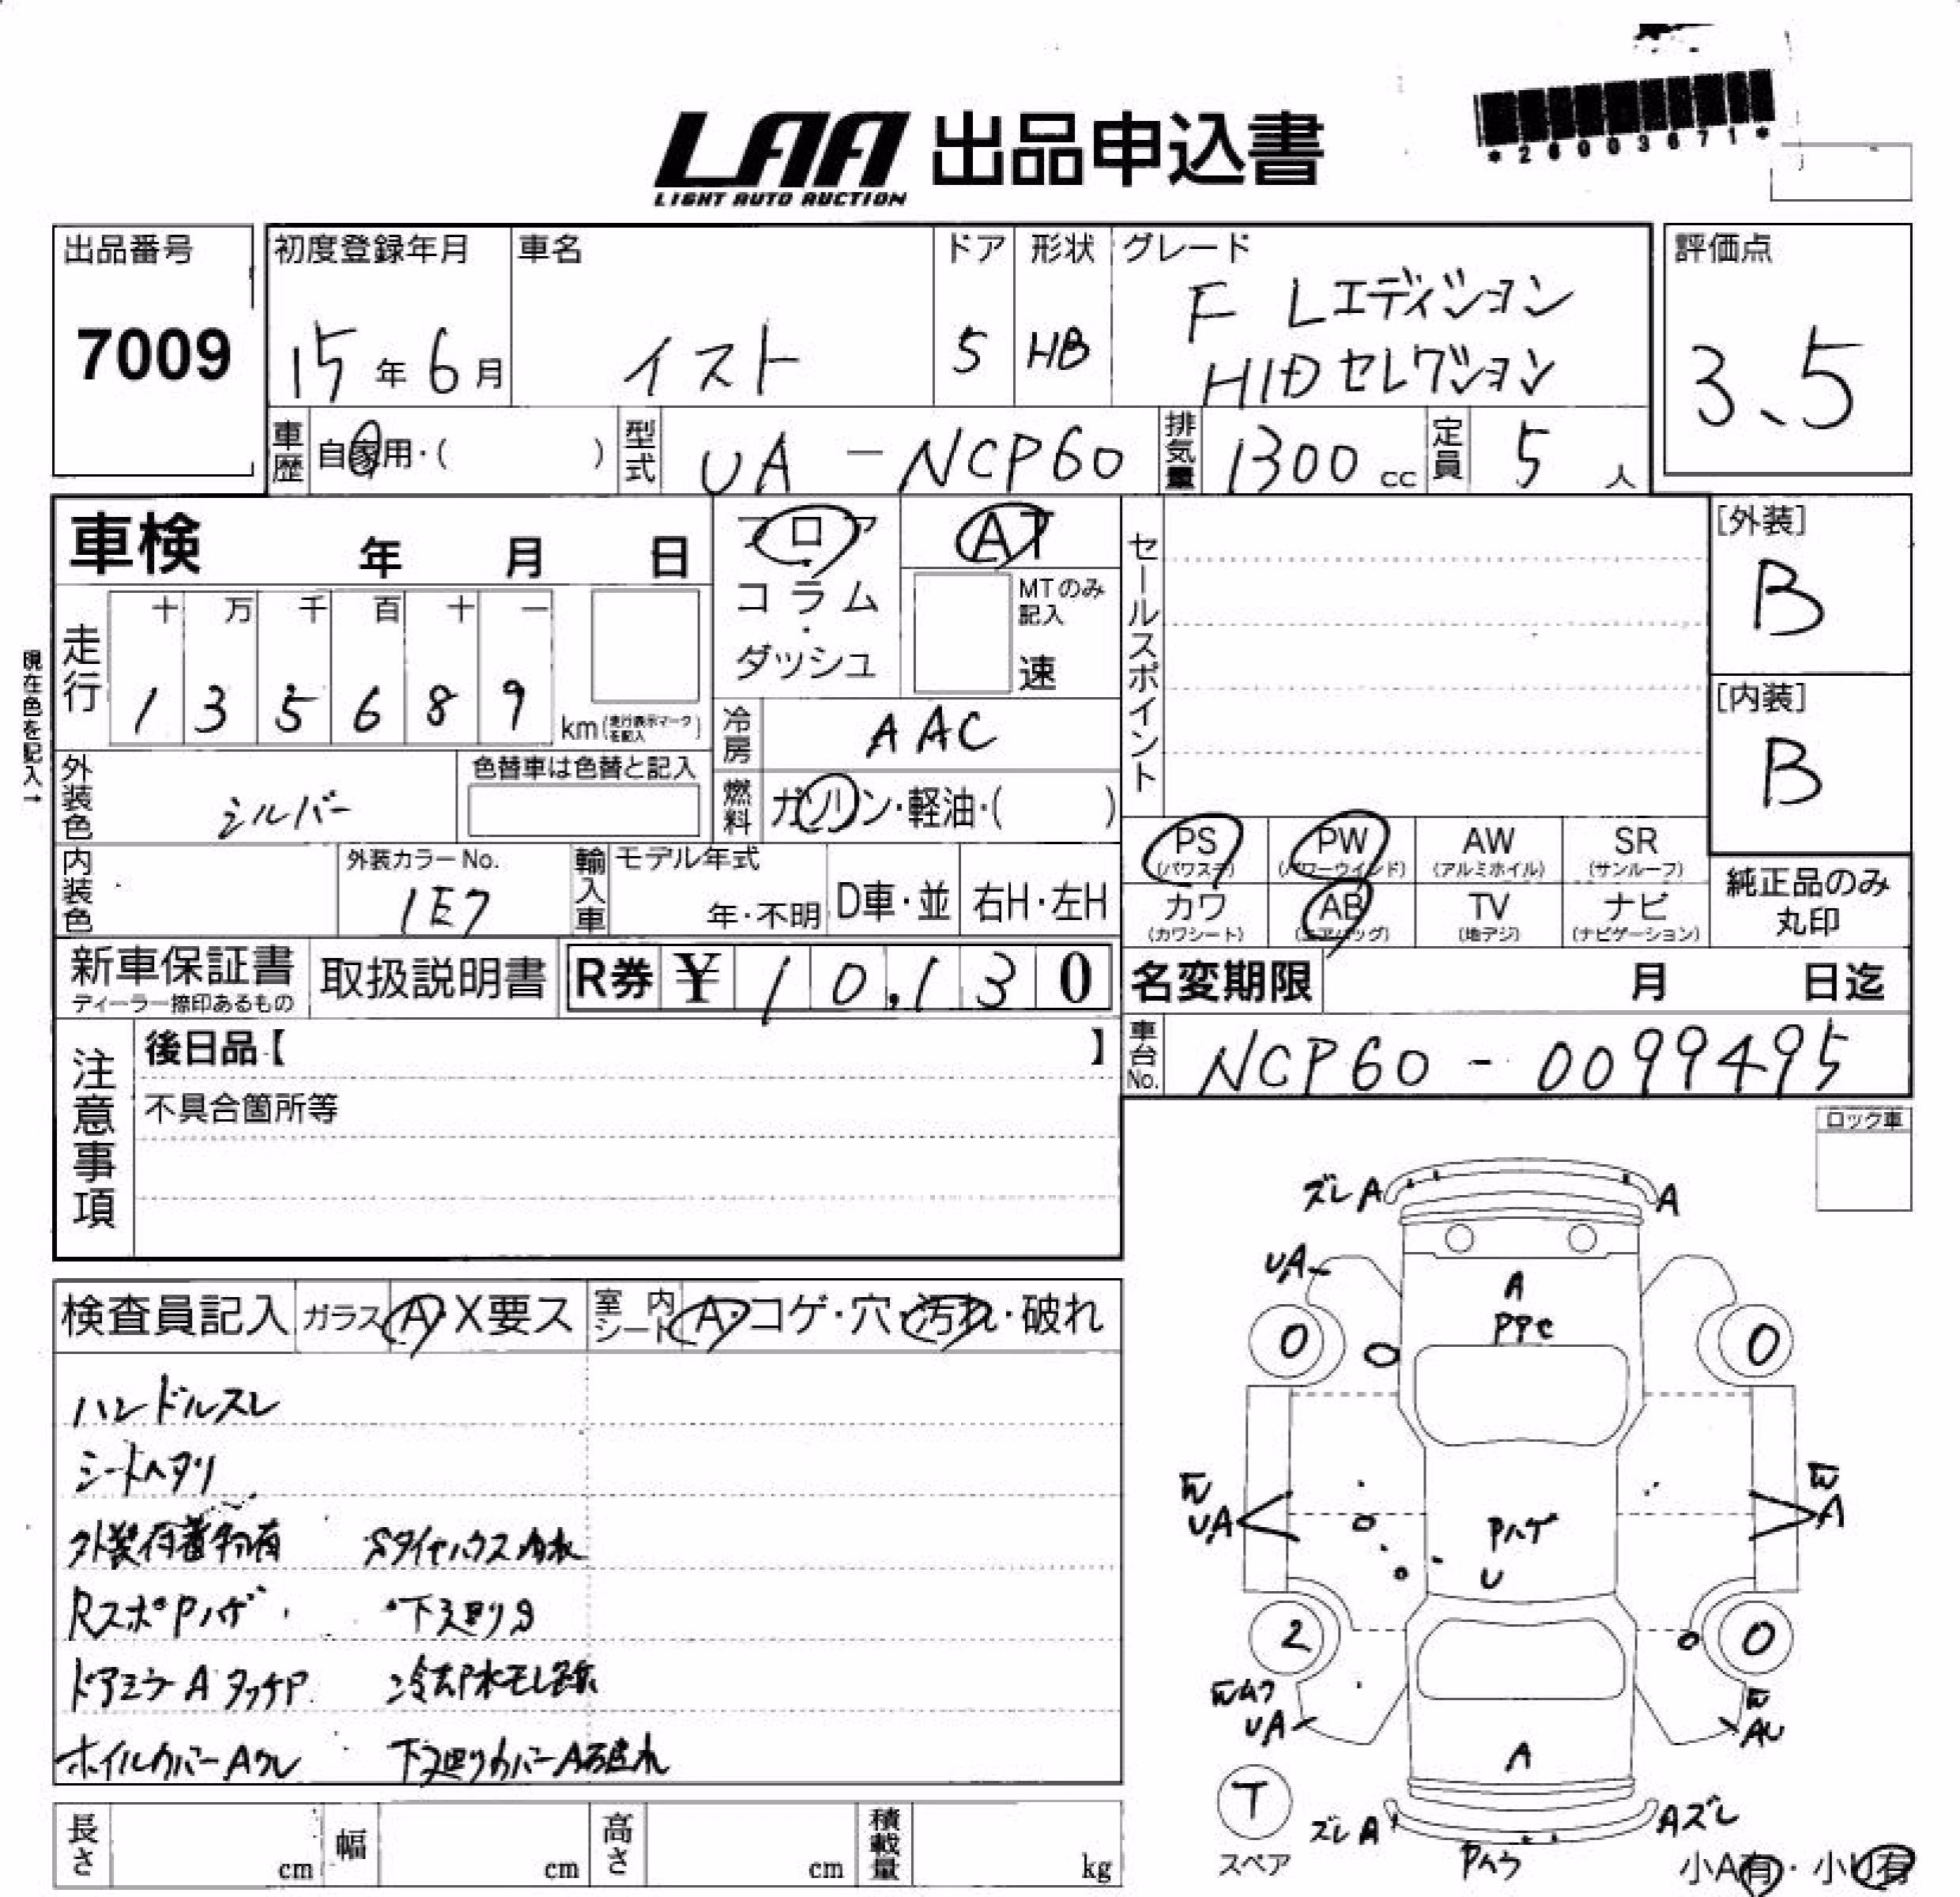 *26003671*
LAA 出品申込書
LIGHT AUTO AUCTION
出品番号
7009
初度登録年月
15年6月
車名
イスト
ドア
5
形状
HB
グレード
F Lエディション
HIDセレクション
評価点
3.5
車歴
自家用・( )
型式
UA-NCP60
排気量
1300cc
定員
5人
車検 年 月 日
フロア
コラム
・
ダッシュ
AT
MTのみ
記入
速
セールスポイント
[外装]
B
[内装]
B
現在色を記入→
走行
十 万 千 百 十 一
1 3 5 6 8 9 km(走行表示マークを記入)
冷房
AAC
外装色
シルバー
色替車は色替と記入
燃料
ガソリン・軽油・( )
内装色
外装カラーNo.
1E7
輸入車
モデル年式
年・不明
D車・並
右H・左H
PS
(パワステ)
PW
(パワーウインド)
AW
(アルミホイル)
SR
(サンルーフ)
カワ
(カワシート)
AB
(エアバッグ)
TV
(地デジ)
ナビ
(ナビゲーション)
純正品のみ
丸印
新車保証書
ディーラー捺印あるもの
取扱説明書
R券 ¥10,130
名変期限 月 日迄
車台No.
NCP60-0099495
注意事項
後日品【 】
不具合箇所等
ロック車
検査員記入
ガラス A・X要ス
室内シート A・コゲ・穴・汚れ・破れ
ハンドルスレ
シートヘタリ
外装付着物有
RスポPハゲ
下廻りS
ドアミラーAタッチP
冷却水モレ跡
ホイルカバーAワレ
下廻りカバーA破れ
ズレA
A
UA
A
PPC
0
0
UA
A
Pハゲ
U
2
0
UA
AU
A
T
スペア
ズレA
Aズレ
小A有・小U有
長さ cm
幅 cm
高さ cm
積載量 kg